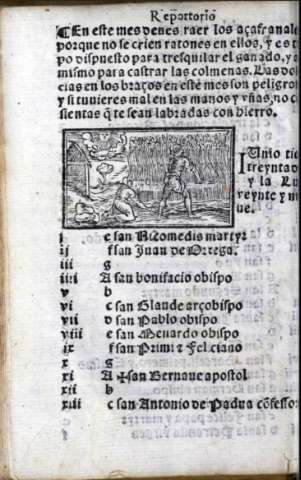 Reportorio
En este mes deues raer los açafranale
porque no se crien ratones en ellos, y es ti
po dispuesto para tresquilar el ganado, y a
mismo para castrar las colmenas. Las do
cias en los braços en este mes son peligro
y si tuuieres mal en las manos y vñas, no c
sientas q̃ te sean labradas con hierro.
IUnio tie
treynta d
y la Lu
veynte y n
ue.
j e san Nicomedis martyr
ij f san Juan de Ortega.
iij g
iiij A san bonifacio obispo
v b
vi c san Glaude arçobispo
vii d san Pablo obispo
viii e san Menardo obispo
ix f san Primi ⁊ Feliciano
x g
xi A ✠ san Bernaue apostol
xii b
xiii c san Antonio de Padua cõfessor